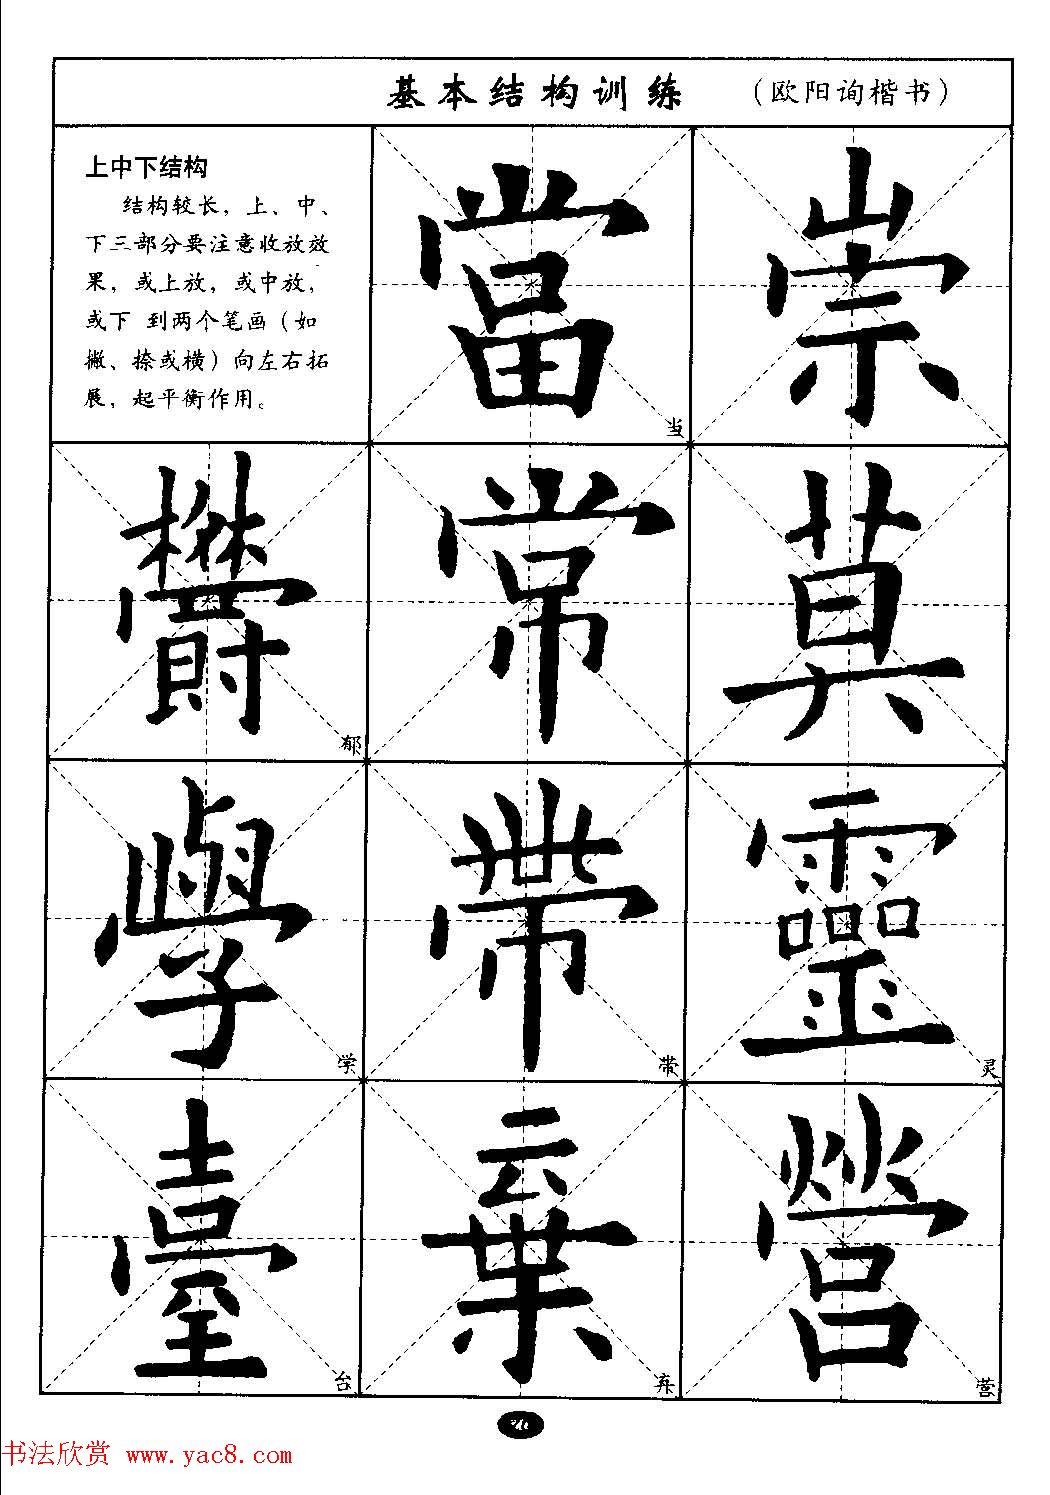 基本结构训练 （欧阳询楷书）
上中下结构
结构较长，上、中、
下三部分要注意收放效
果，或上放，或中放，
或下 到两个笔画（如
撇、捺或横）向左右拓
展，起平衡作用。
當 当
崇
欝 郁
常
莫
學 学
帶 带
靈 灵
臺 台
棄 弃
營 营
书法欣赏 www.yac8.com